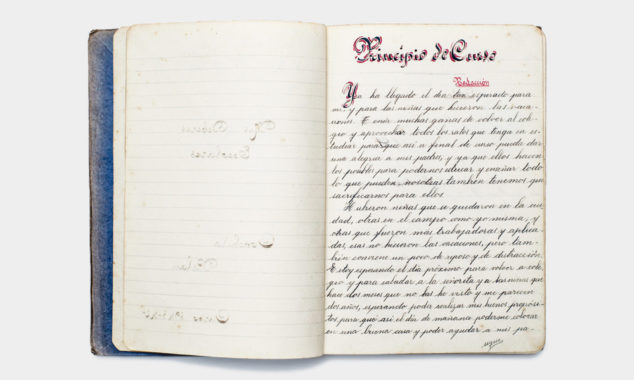 Mis Deberes
Escolares
Conchita
Curso 1943-44
Principio de Curso
Redacción
Ya ha llegado el día tan esperado para
mi y para las niñas que hicieron las vaca-
ciones. Tenía muchas ganas de volver al cole-
gio y aprovechar todos los ratos que tenga en es-
tudiar para que asi a final de curso pueda dar
una alegria a mis padres, y ya que ellos hacen
los posibles para podernos educar y enseñar todo
lo que pueden, nosotras también tenemos que
sacrificarnos para ellos.
Hubieron niñas que se quedaron en la ciu-
dad, otras en el campo como yo misma, y
otras que fueron más trabajadoras y aplica-
das, esas no hicieron las vacaciones, pero tam-
bién conviene un poco de reposo y de distracción.
Estoy esperando el día próximo para volver a cole-
gio y para saludar a la señorita y a las monjas que
hace dos meses que no las he visto y me parecen
dos años, esperando poder realizar mis buenos propósi-
tos para que asi el día de mañana poderme colocar
en una buena casa y poder ayudar a mis pa-
sigue